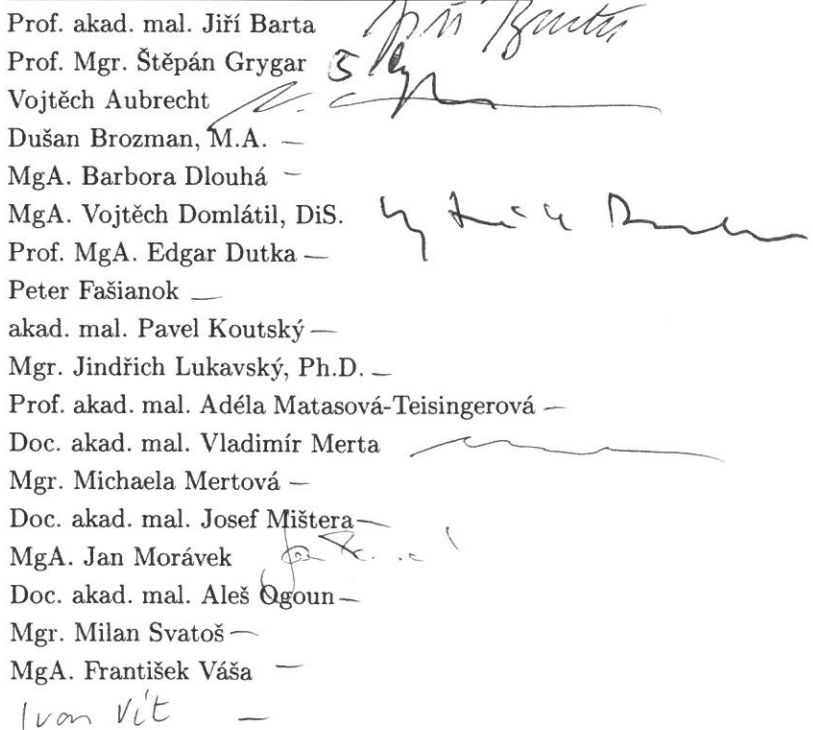 Prof. akad. mal. Jiří Barta Jiří Barta
Prof. Mgr. Štěpán Grygar
Vojtěch Aubrecht
Dušan Brozman, M.A. —
MgA. Barbora Dlouhá —
MgA. Vojtěch Domlátil, DiS.
Prof. MgA. Edgar Dutka —
Peter Fašianok —
akad. mal. Pavel Koutský —
Mgr. Jindřich Lukavský, Ph.D. —
Prof. akad. mal. Adéla Matasová-Teisingerová —
Doc. akad. mal. Vladimír Merta
Mgr. Michaela Mertová —
Doc. akad. mal. Josef Mištera —
MgA. Jan Morávek
Doc. akad. mal. Aleš Ogoun —
Mgr. Milan Svatoš —
MgA. František Váša —
Ivan Vít —